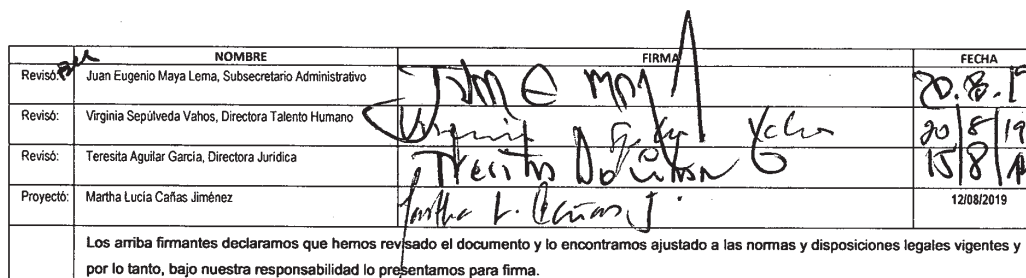 NOMBRE FIRMA FECHA
Revisó: Juan Eugenio Maya Lema, Subsecretario Administrativo 20.8.19
Revisó: Virginia Sepúlveda Vahos, Directora Talento Humano 20/8/19
Revisó: Teresita Aguilar García, Directora Jurídica Teresita Aguilar 15/8/19
Proyectó: Martha Lucía Cañas Jiménez Martha L. Cañas J. 12/08/2019
Los arriba firmantes declaramos que hemos revisado el documento y lo encontramos ajustado a las normas y disposiciones legales vigentes y
por lo tanto, bajo nuestra responsabilidad lo presentamos para firma.